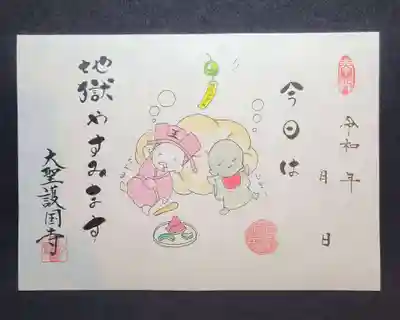 令和 年
月 日
今日は
地獄やすみます
大聖護国寺
王